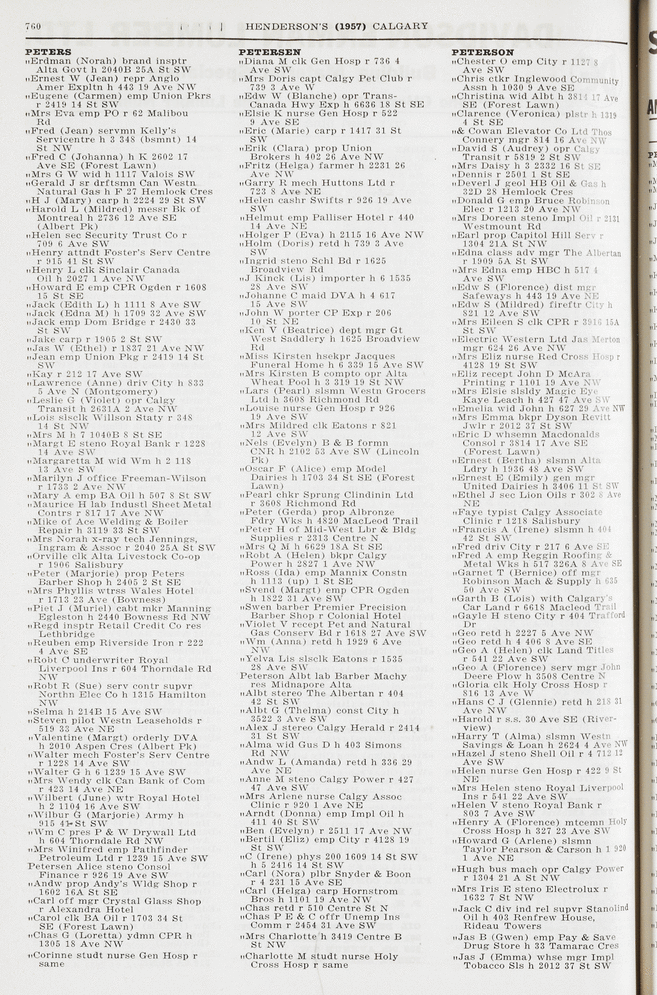 760
HENDERSON'S (1957) CALGARY
PETERS
"Erdman (Norah) brand insptr
Alta Govt h 2040B 25A St SW
"Ernest W (Jean) repr Anglo
Amer Expltn h 443 19 Ave NW
"Eugene (Carmen) emp Union Pkrs
r 2419 14 St SW
"Mrs Eva emp PO r 62 Malibou
Rd
"Fred (Jean) servmn Kelly's
Servicentre h 3 348 (bsmnt) 14
St NW
"Fred C (Johanna) h K 2602 17
Ave SE (Forest Lawn)
"Mrs G W wid h 1117 Valois SW
"Gerald J sr drftsmn Can Westn
Natural Gas h F 27 Hemlock Cres
"H J (Mary) carp h 2224 29 St SW
"Harold L (Mildred) messr Bk of
Montreal h 2736 12 Ave SE
(Albert Pk)
"Helen sec Security Trust Co r
709 6 Ave SW
"Henry attndt Foster's Serv Centre
r 915 41 St SW
"Henry L clk Sinclair Canada
Oil h 2027 1 Ave NW
"Howard E emp CPR Ogden r 1608
15 St SE
"Jack (Edith L) h 1111 8 Ave SW
"Jack (Edna M) h 1709 32 Ave SW
"Jack emp Dom Bridge r 2430 33
St SW
"Jake carp r 1905 2 St SW
"Jas W (Ethel) r 1837 21 Ave NW
"Jean emp Union Pkg r 2419 14 St
SW
"Kay r 212 17 Ave SW
"Lawrence (Anne) driv City h 833
5 Ave N (Montgomery)
"Leslie G (Violet) opr Calgy
Transit h 2631A 2 Ave NW
"Lois slsclk Willson Staty r 348
14 St NW
"Mrs M h 7 1040B 8 St SE
"Margt E steno Royal Bank r 1228
14 Ave SW
"Margaretta M wid Wm h 2 118
13 Ave SW
"Marilyn J office Freeman-Wilson
r 1733 2 Ave NW
"Mary A emp BA Oil h 507 8 St SW
"Maurice H lab Industl Sheet Metal
Contrs r 817 17 Ave NW
"Mike of Ace Welding & Boiler
Repair h 3119 33 St SW
"Mrs Norah x-ray tech Jennings,
Ingram & Assor r 2040 25A St SW
"Orville clk Alta Livestock Co-op
r 1906 Salisbury
"Peter (Marjorie) prop Peters
Barber Shop h 2405 2 St SE
"Mrs Phyllis wtrss Wales Hotel
r 1713 23 Ave (Bowness)
"Piet J (Muriel) cabt mkr Manning
Egleston h 2440 Bowness Rd NW
"Regd insptr Retail Credit Co res
Lethbridge
"Reuben emp Riverside Iron r 222
4 Ave SE
"Robt C underwriter Royal
Liverpool Ins r 604 Thorndale Rd
NW
"Robt R (Sue) serv contr supvr
Northn Elec Co h 1315 Hamilton
NW
"Selma h 214B 15 Ave SW
"Steven pilot Westn Leaseholds r
519 33 Ave NE
"Valentine (Margt) orderly DVA
h 2010 Aspen Cres (Albert Pk)
"Walter mech Foster's Serv Centre
r 1228 14 Ave SW
"Walter G h 6 1239 15 Ave SW
"Mrs Wendy clk Can Bank of Com
r 423 14 Ave NE
"Wilbert (June) wtr Royal Hotel
h 2 1104 16 Ave SW
"Wilbur G (Marjorie) Army h
915 41 St SW
"Wm C pres P & W Drywall Ltd
h 604 Thorndale Rd NW
"Mrs Winifred emp Pathfinder
Petroleum Ltd r 1239 15 Ave SW
Petersen Alice steno Consol
Finance r 926 19 Ave SW
"Andw prop Andy's Wldg Shop r
1602 16A St SE
"Carl off mgr Crystal Glass Shop
r Alexandra Hotel
"Carol clk BA Oil r 1703 34 St
SE (Forest Lawn)
"Chas G (Loretta) ydmn CPR h
1305 18 Ave NW
"Corinne studt nurse Gen Hosp r
same
PETERSEN
"Diana M clk Gen Hosp r 736 4
Ave SW
"Mrs Doris capt Calgy Pet Club r
739 3 Ave W
"Edw W (Blanche) opr Trans-
Canada Hwy Exp h 6636 18 St SE
"Elsie K nurse Gen Hosp r 522
9 Ave SE
"Eric (Marie) carp r 1417 31 St
SW
"Erik (Clara) prop Union
Brokers h 402 26 Ave NW
"Fritz (Helga) farmer h 2231 26
Ave NW
"Garry R mech Huttons Ltd r
723 8 Ave NE
"Helen cashr Swifts r 926 19 Ave
SW
"Helmut emp Palliser Hotel r 440
14 Ave NE
"Holger P (Eva) h 2115 16 Ave NW
"Holm (Doris) retd h 739 3 Ave
SW
"Ingrid steno Schl Bd r 1625
Broadview Rd
"J Kinck (Lis) importer h 6 1535
28 Ave SW
"Johanne C maid DVA h 4 617
15 Ave SW
"John W porter CP Exp r 206
10 St NE
"Ken V (Beatrice) dept mgr Gt
West Saddlery h 1625 Broadview
Rd
"Miss Kirsten hsekpr Jacques
Funeral Home h 6 339 15 Ave SW
"Mrs Kirsten B compto opr Alta
Wheat Pool h 3 319 19 St NW
"Lars (Pearl) slsmn Westn Grocers
Ltd h 3608 Richmond Rd
"Louise nurse Gen Hosp r 926
19 Ave SW
"Mrs Mildred clk Eatons r 821
12 Ave SW
"Nels (Evelyn) B & B formn
CNR h 2102 53 Ave SW (Lincoln
Pk)
"Oscar F (Alice) emp Model
Dairies h 1703 34 St SE (Forest
Lawn)
"Pearl chkr Sprung Clindinin Ltd
r 3608 Richmond Rd
"Peter (Gerda) prop Albronze
Fdry Wks h 4820 MacLeod Trail
"Peter H of Mid-West Lbr & Bldg
Supplies r 2313 Centre N
"Mrs Q M h 6629 18A St SE
"Robt A (Helen) bkpr Calgy
Power h 2827 1 Ave NW
"Ross (Ida) emp Mannix Constn
h 1113 (up) 1 St SE
"Svend (Margt) emp CPR Ogden
h 1822 31 Ave SW
"Swen barber Premier Precision
Barber Shop r Colonial Hotel
"Violet V recept Pet and Natural
Gas Conserv Bd r 1618 27 Ave SW
"Wm (Anna) retd h 1929 6 Ave
NW
"Yelva Lis slsclk Eatons r 1535
28 Ave SW
Peterson Albt lab Barber Machy
res Midnapore Alta
"Albt stereo The Albertan r 404
42 St SW
"Albt G (Thelma) const City h
3522 3 Ave SW
"Alex J stereo Calgy Herald r 2414
31 St SW
"Alma wid Gus D h 403 Simons
Rd NW
"Andw L (Amanda) retd h 336 29
Ave NE
"Anne M steno Calgy Power r 427
47 Ave SW
"Mrs Arlene nurse Calgy Assoc
Clinic r 920 1 Ave NE
"Arndt (Donna) emp Impl Oil h
411 40 St SW
"Ben (Evelyn) r 2511 17 Ave NW
"Bertil (Eliz) emp City r 4128 19
St SW
"C (Irene) phys 200 1609 14 St SW
h 5 2416 14 St SW
"Carl (Nora) plbr Snyder & Boon
r 4 231 15 Ave SE
"Carl (Helga) carp Hornstrom
Bros h 1101 19 Ave NW
"Chas retd r 510 Centre St N
"Chas P E & C offr Unemp Ins
Comm r 2454 31 Ave SW
"Mrs Charlotte h 3419 Centre B
St NW
"Charlotte M studt nurse Holy
Cross Hosp r same
PETERSON
"Chester O emp City r 1127 8
Ave SW
"Chris ctkr Inglewood Community
Assn h 1030 9 Ave SE
"Christina wid Albt h 3814 17 Ave
SE (Forest Lawn)
"Clarence (Veronica) plstr h 1319
4 St SE
"& Cowan Elevator Co Ltd Thos
Connery mgr 814 16 Ave NW
"David S (Audrey) opr Calgy
Transit r 5819 2 St SW
"Mrs Daisy h 3 2332 16 St SE
"Dennis r 2501 1 St SE
"Deverl J geol HB Oil & Gas h
32D 28 Hemlock Cres
"Donald G emp Bruce Robinson
Elec r 1213 20 Ave NW
"Mrs Doreen steno Impl Oil r 2131
Westmount Rd
"Earl prop Capitol Hill Serv r
1304 21A St NW
"Edna class adv mgr The Albertan
r 1909 5A St SW
"Mrs Edna emp HBC h 517 4
Ave SW
"Edw S (Florence) dist mgr
Safeways h 443 19 Ave NE
"Edw S (Mildred) fireftr City h
821 12 Ave SW
"Mrs Eileen S clk CPR r 3916 15A
St SW
"Electric Western Ltd Jas Merton
mgr 624 26 Ave NW
"Mrs Eliz nurse Red Cross Hosp r
4128 19 St SW
"Eliz recept John D McAra
Printing r 1101 19 Ave NW
"Mrs Elsie slsldy Magic Eye
Kaye Leach h 427 47 Ave SW
"Emelia wid John h 627 29 Ave NW
"Mrs Emma bkpr Dyson Revitt
Jwlr r 2012 37 St SW
"Eric D whsemn Macdonalds
Consol r 3814 17 Ave SE
(Forest Lawn)
"Ernest (Bertha) slsmn Alta
Ldry h 1936 48 Ave SW
"Ernest E (Emily) gen mgr
United Dairies h 3406 11 St SW
"Ethel J sec Lion Oils r 302 8 Ave
NE
"Faye typist Calgy Associate
Clinic r 1218 Salisbury
"Francis A (Irene) slsmn h 404
42 St SW
"Fred driv City r 217 6 Ave SE
"Fred A emp Reggin Roofing &
Metal Wks h 517 326A 8 Ave SE
"Garnet T (Bernice) off mgr
Robinson Mach & Supply h 635
50 Ave SW
"Garth B (Lois) with Calgary's
Car Land r 6618 Macleod Trail
"Gayle H steno City r 404 Trafford
Dr
"Geo retd h 2227 5 Ave NW
"Geo retd h 4 406 8 Ave SE
"Geo A (Helen) clk Land Titles
r 541 22 Ave SW
"Geo A (Florence) serv mgr John
Deere Plow h 3508 Centre N
"Gloria clk Holy Cross Hosp r
816 13 Ave W
"Hans C J (Glennie) retd h 218 31
Ave NW
"Harold r s.s. 30 Ave SE (River-
view)
"Harry T (Alma) slsmn Westn
Savings & Loan h 2624 4 Ave NW
"Hazel J steno Shell Oil r 4 712 12
Ave SW
"Helen nurse Gen Hosp r 422 9 St
NE
"Mrs Helen steno Royal Liverpool
Ins r 541 22 Ave SW
"Helen V steno Royal Bank r
803 7 Ave SW
"Henry A (Florence) mtcemn Holy
Cross Hosp h 327 23 Ave SW
"Howard G (Arlene) slsmn
Taylor Pearson & Carson h 1 920
1 Ave NE
"Hugh bus mach opr Calgy Power
r 1304 21 A St NW
"Mrs Iris E steno Electrolux r
1632 7 St NW
"Jack C div ind rel supvr Stanolind
Oil h 403 Renfrew House,
Rideau Towers
"Jas B (Gwen) emp Pay & Save
Drug Store h 33 Tamarac Cres
"Jas J (Emma) whse mgr Impl
Tobacco Sls h 2012 37 St SW